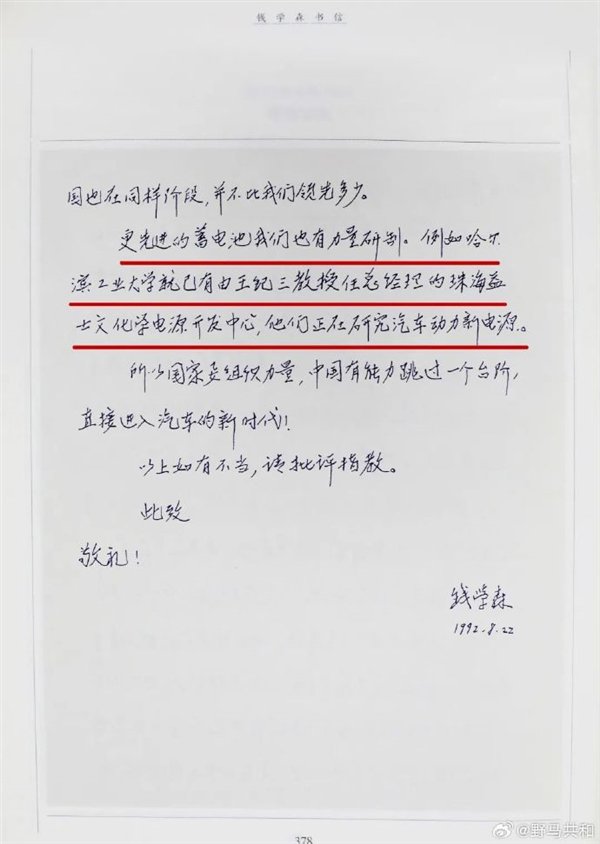 钱学森书信
国也在同样阶段，并不比我们领先多少。
更先进的蓄电池我们也有力量研制。例如哈尔
滨工业大学就已有由王纪三教授任总经理的珠海益
士文化学电源开发中心，他们正在研究汽车动力新电源。
所以国家要组织力量，中国有能力跳过一个台阶，
直接进入汽车的新时代！
以上如有不当，请批评指教。
此致
敬礼！
钱学森
1992.8.22
378
@野马共和